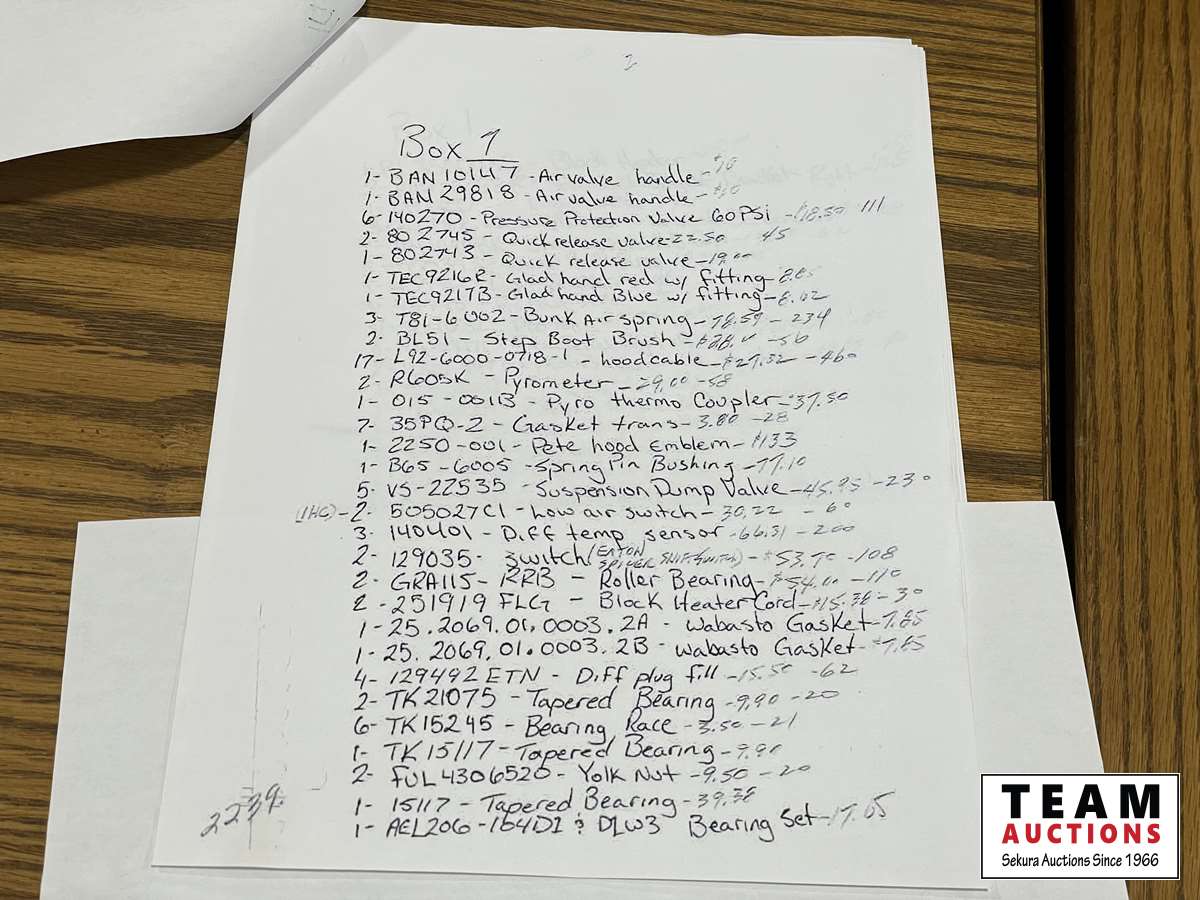 Box 1
1- BAN 10147 - Air valve handle - $10
1- BAN 29818 - Air valve handle - $10
6- 140270 - Pressure Protection Valve 60 PSi - $18.50 111
2- 802745 - Quick release valve - 22.50 45
1- 802743 - Quick release valve - 19.00
1- TEC9216R - Glad hand red w/ fitting - 8.85
1- TEC9217B - Glad hand Blue w/ fitting - 8.02
3- T81-6002 - Bunk Air spring - 78.59 - 234
2- BL51 - Step Boot Brush - $28. - 56
17- L92-6000-0718-1 - hood cable - $27.32 - 460
2- R605K - Pyrometer - 29.00 - 58
1- 015-001B - Pyro thermo Coupler - $37.50
7- 35PQ-2 - Gasket trans - 3.80 - 28
1- 2250-001 - Pete hood Emblem - $133
1- B65-6005 - Spring Pin Bushing - 77.10
5- VS-22535 - Suspension Dump Valve - 45.95 - 230
(IHC) - 2- 505027C1 - Low air switch - 30.22 - 60
3- 140401 - Diff temp sensor - 66.31 - 200
2- 129035 - switch (EATON SPICER SHIFT SWITCH) - $53.90 - 108
2- GRA115-RRB - Roller Bearing - $54.00 - 110
2- 251919 FLG - Block Heater Cord - $15.38 - 30
1- 25.2069.01.0003.2A - Wabasto Gasket - 7.85
1- 25.2069.01.0003.2B - Wabasto Gasket - $7.85
4- 129492 ETN - Diff plug fill - 15.50 - 62
2- TK21075 - Tapered Bearing - 9.90 - 20
6- TK15245 - Bearing Race - 3.50 - 21
1- TK15117 - Tapered Bearing - 9.90
2- FUL4306520 - Yolk Nut - 9.50 - 20
1- 15117 - Tapered Bearing - 39.38
1- AEL206-164D1 & DLW3 Bearing Set - 17.65
2239
TEAM
AUCTIONS
Sekura Auctions Since 1966